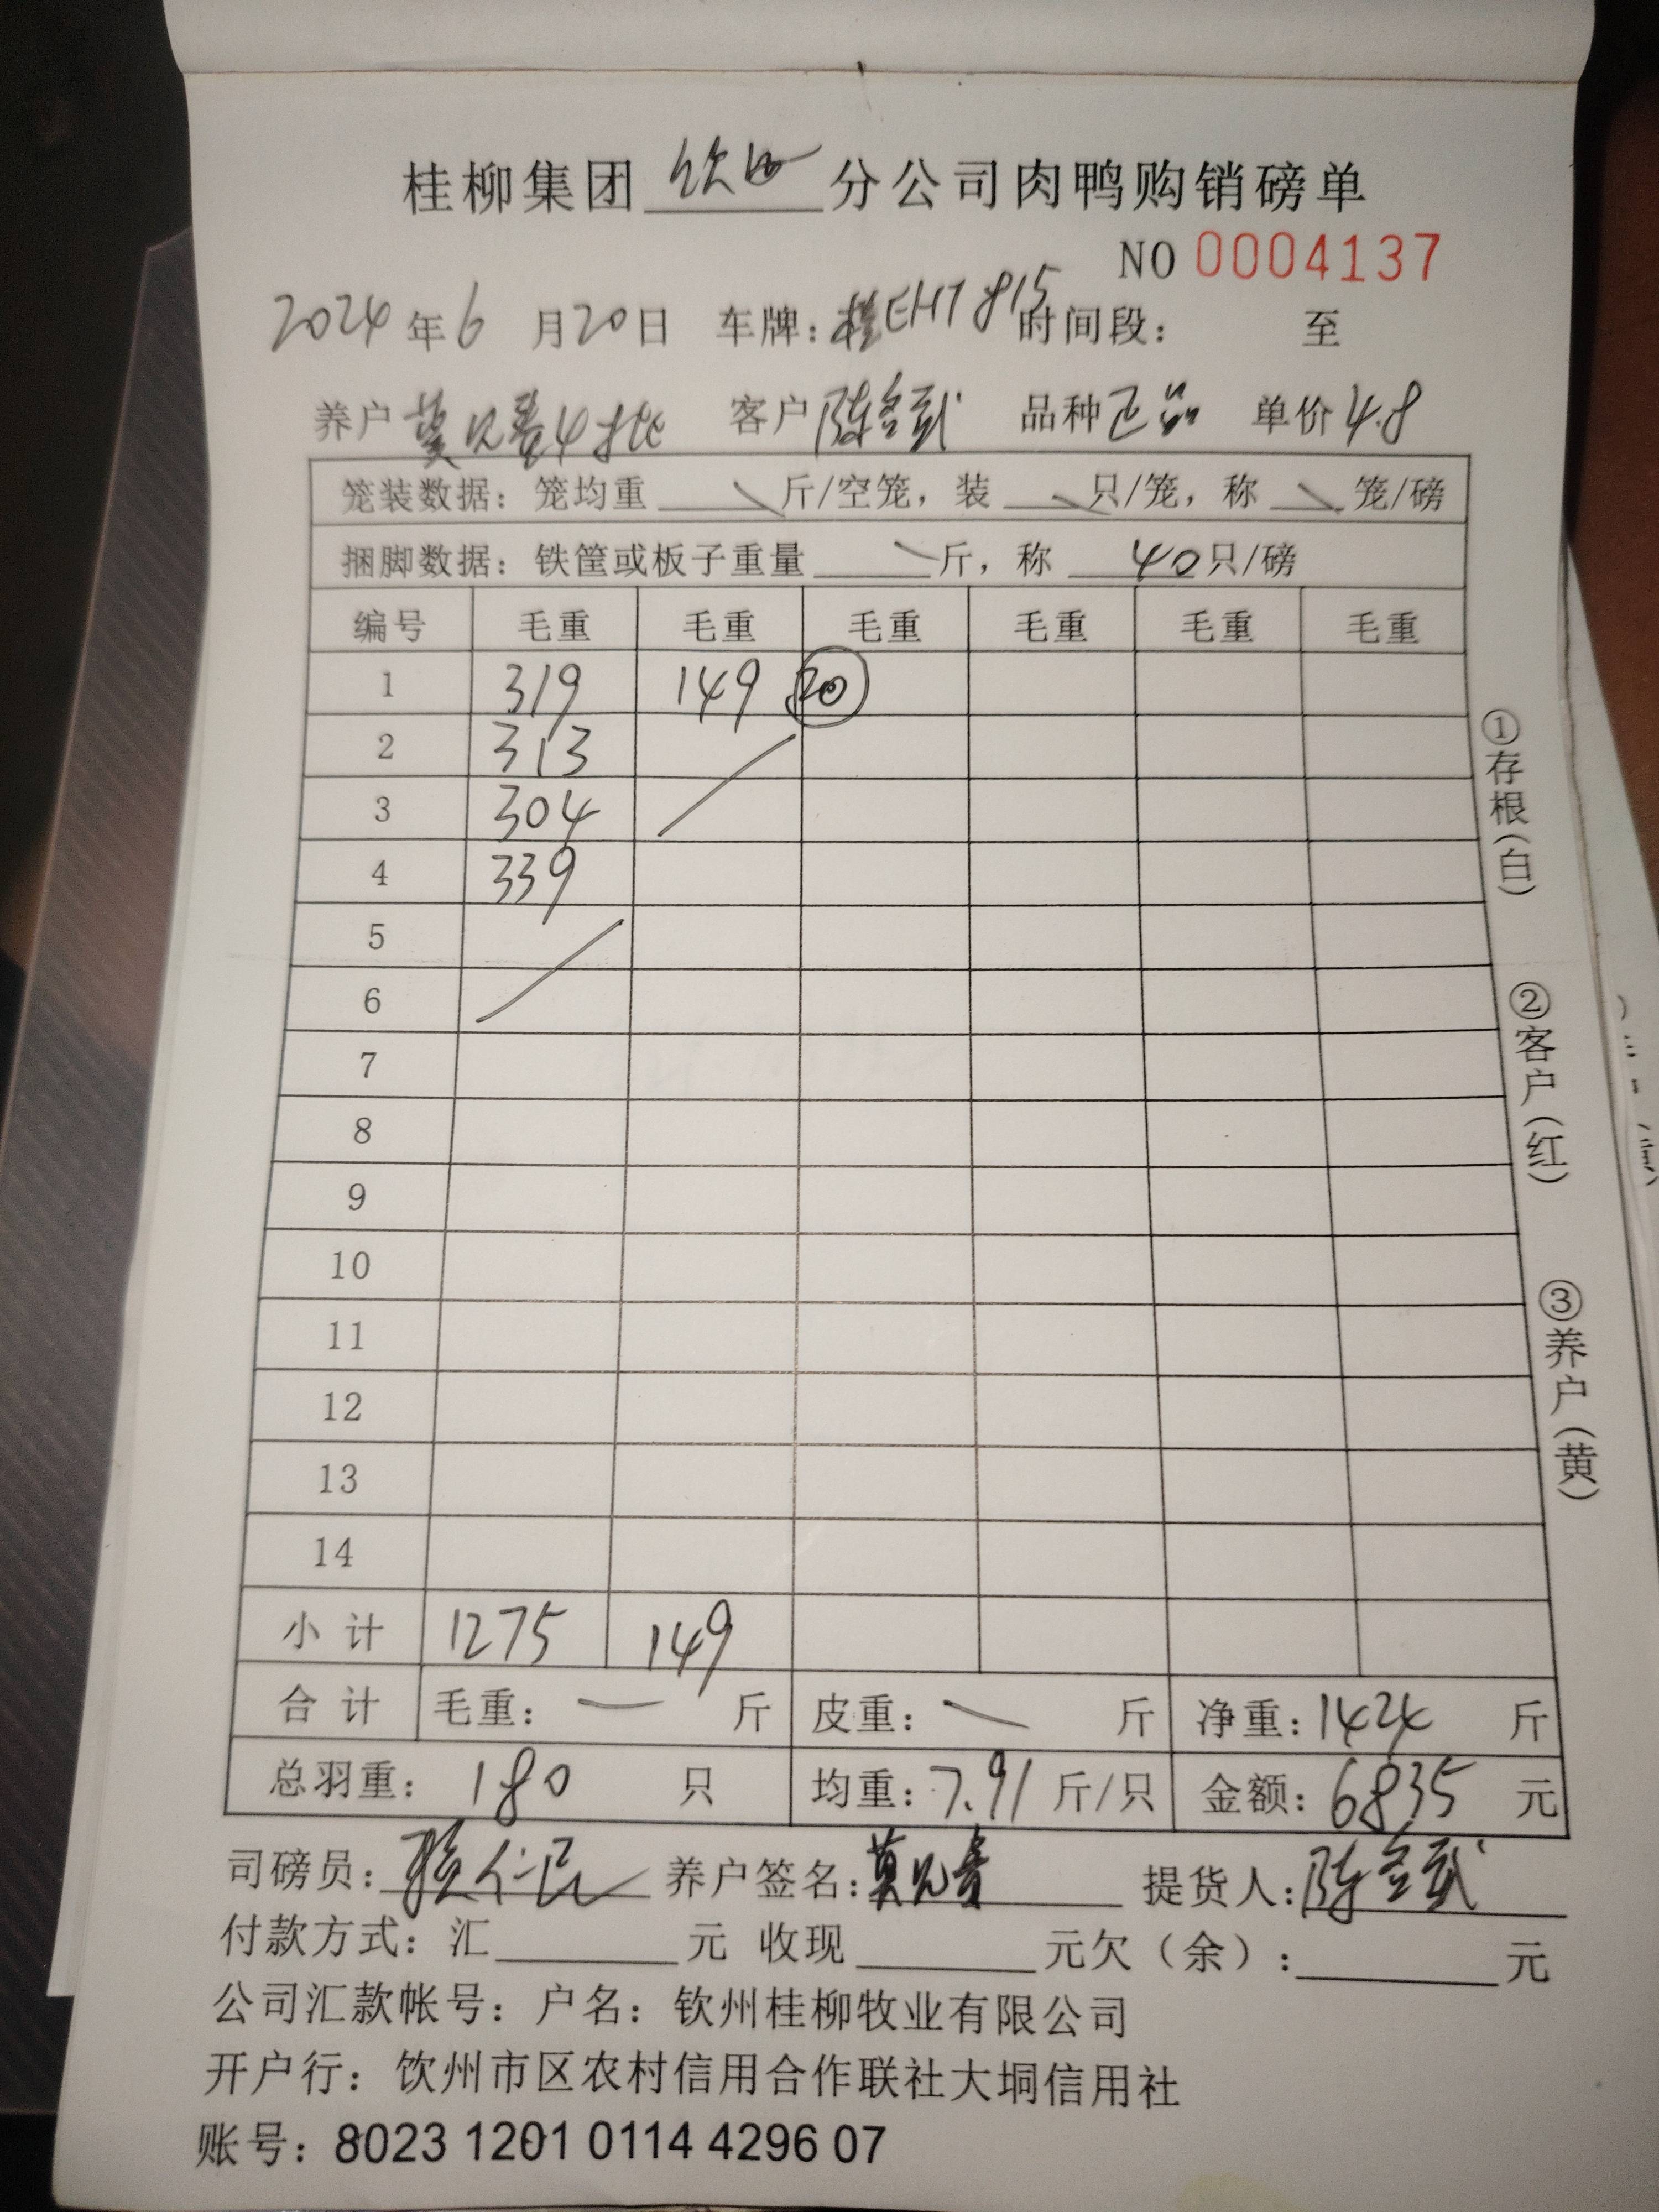 桂柳集团 钦州 分公司肉鸭购销磅单
NO 0004137
2024年6月20日 车牌：桂EHT815 时间段： 至
养户 莫 4批 客户 陈 武 品种 正品 单价 4.8
笼装数据：笼均重 斤/空笼，装 只/笼，称 笼/磅
捆脚数据：铁筐或板子重量 斤，称 40只/磅
编号 毛重 毛重 毛重 毛重 毛重 毛重
1 319 149 20
2 313
3 304
4 339
5
6
7
8
9
10
11
12
13
14
小计 1275 149
合计 毛重： 斤 皮重： 斤 净重：1424 斤
总羽重：180 只 均重：7.91 斤/只 金额：6835 元
司磅员： 仁 养户签名：莫 提货人：陈 武
付款方式：汇 元 收现 元欠（余）： 元
公司汇款帐号：户名：钦州桂柳牧业有限公司
开户行：钦州市区农村信用合作联社大垌信用社
账号：8023 1201 0114 4296 07
①存根（白）
②客户（红）
③养户（黄）